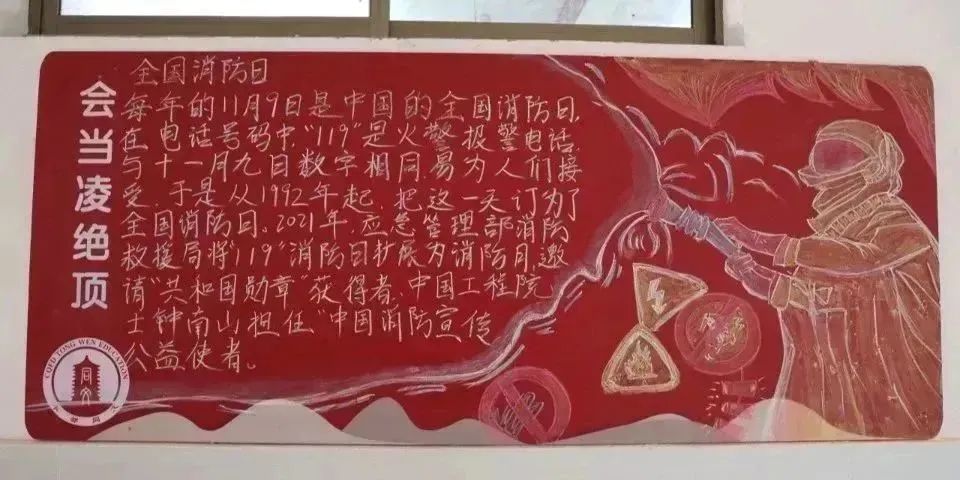 会当凌绝顶
全国消防日
每年的11月9日是中国的全国消防日,
在电话号码中,"119"是火警报警电话,
与十一月九日数字相同,易为人们接
受.于是从1992年起,把这一天订为了
全国消防日。2021年,应急管理部消防
救援局将"119"消防日扩展为消防月,邀
请"共和国勋章"获得者,中国工程院
士钟南山担任"中国消防宣传
公益使者。
TONG WEN EDUCATION
同文